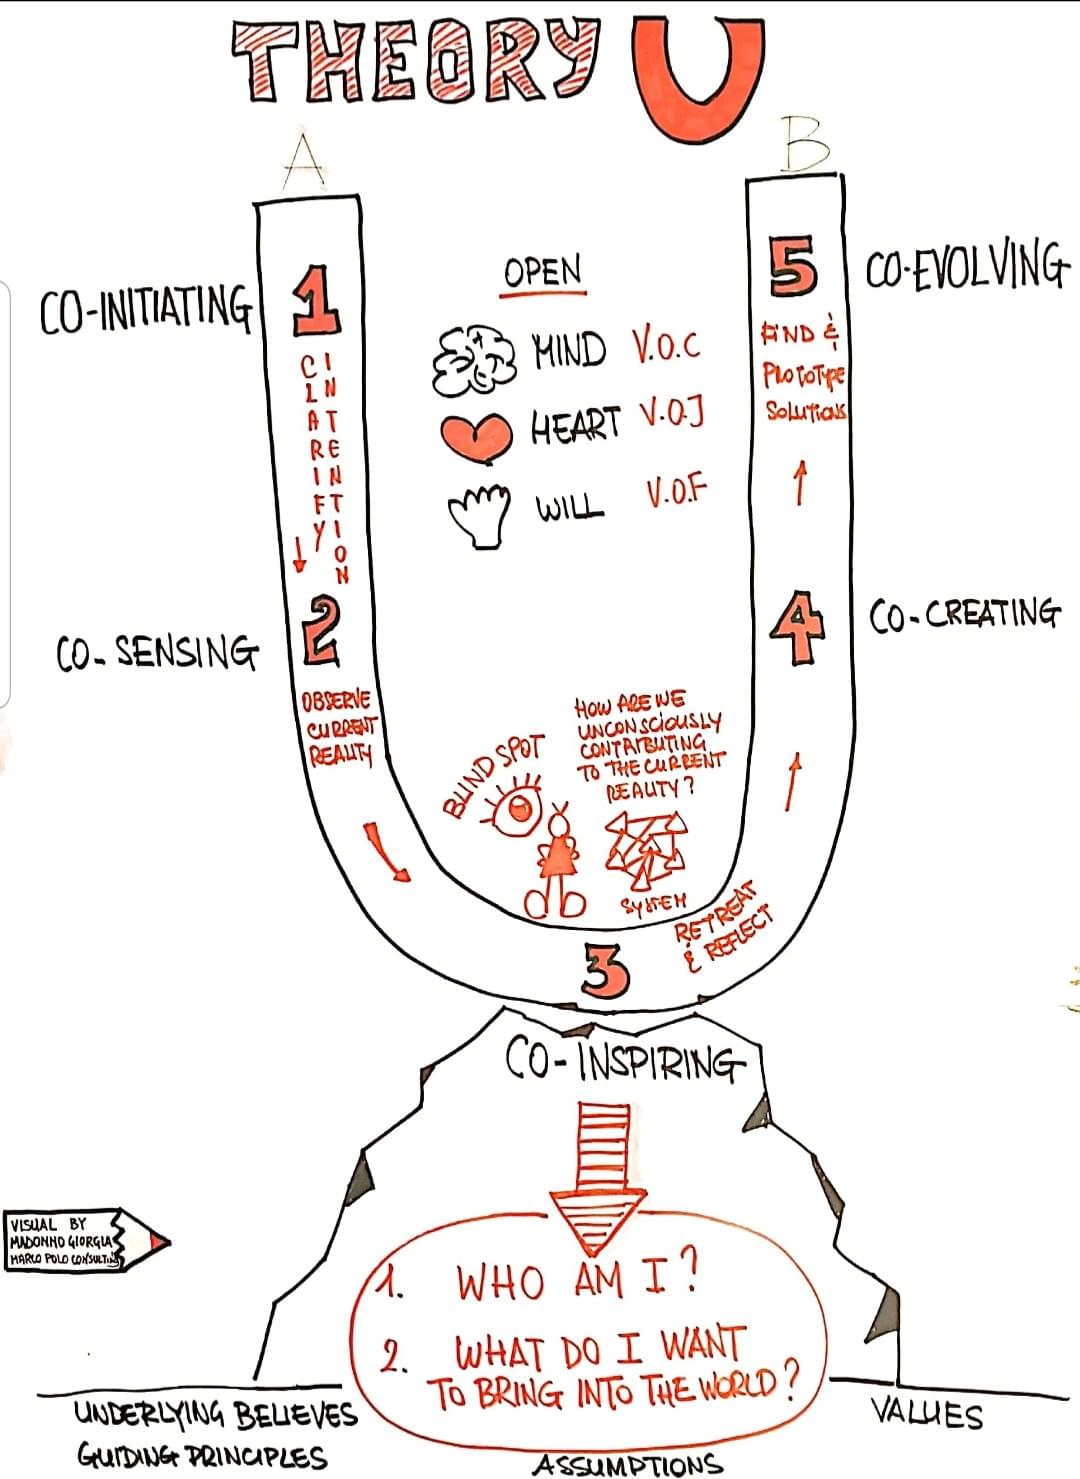 THEORY U
A
B
CO-INITIATING
1
CLARIFY
INTENTION
CO-SENSING
2
OBSERVE
CURRENT
REALITY
OPEN
MIND V.O.C
HEART V.O.J
WILL V.O.F
BLIND SPOT
HOW ARE WE
UNCONSCIOUSLY
CONTRIBUTING
TO THE CURRENT
REALITY?
SYSTEM
3
RETREAT
& REFLECT
CO-INSPIRING
4
CO-CREATING
5
CO-EVOLVING
FIND &
PROTOTYPE
SOLUTIONS
1. WHO AM I?
2. WHAT DO I WANT
TO BRING INTO THE WORLD?
VISUAL BY
MADONNO GIORGIA
MARCO POLO CONSULTING
UNDERLYING BELIEVES
GUIDING PRINCIPLES
ASSUMPTIONS
VALUES